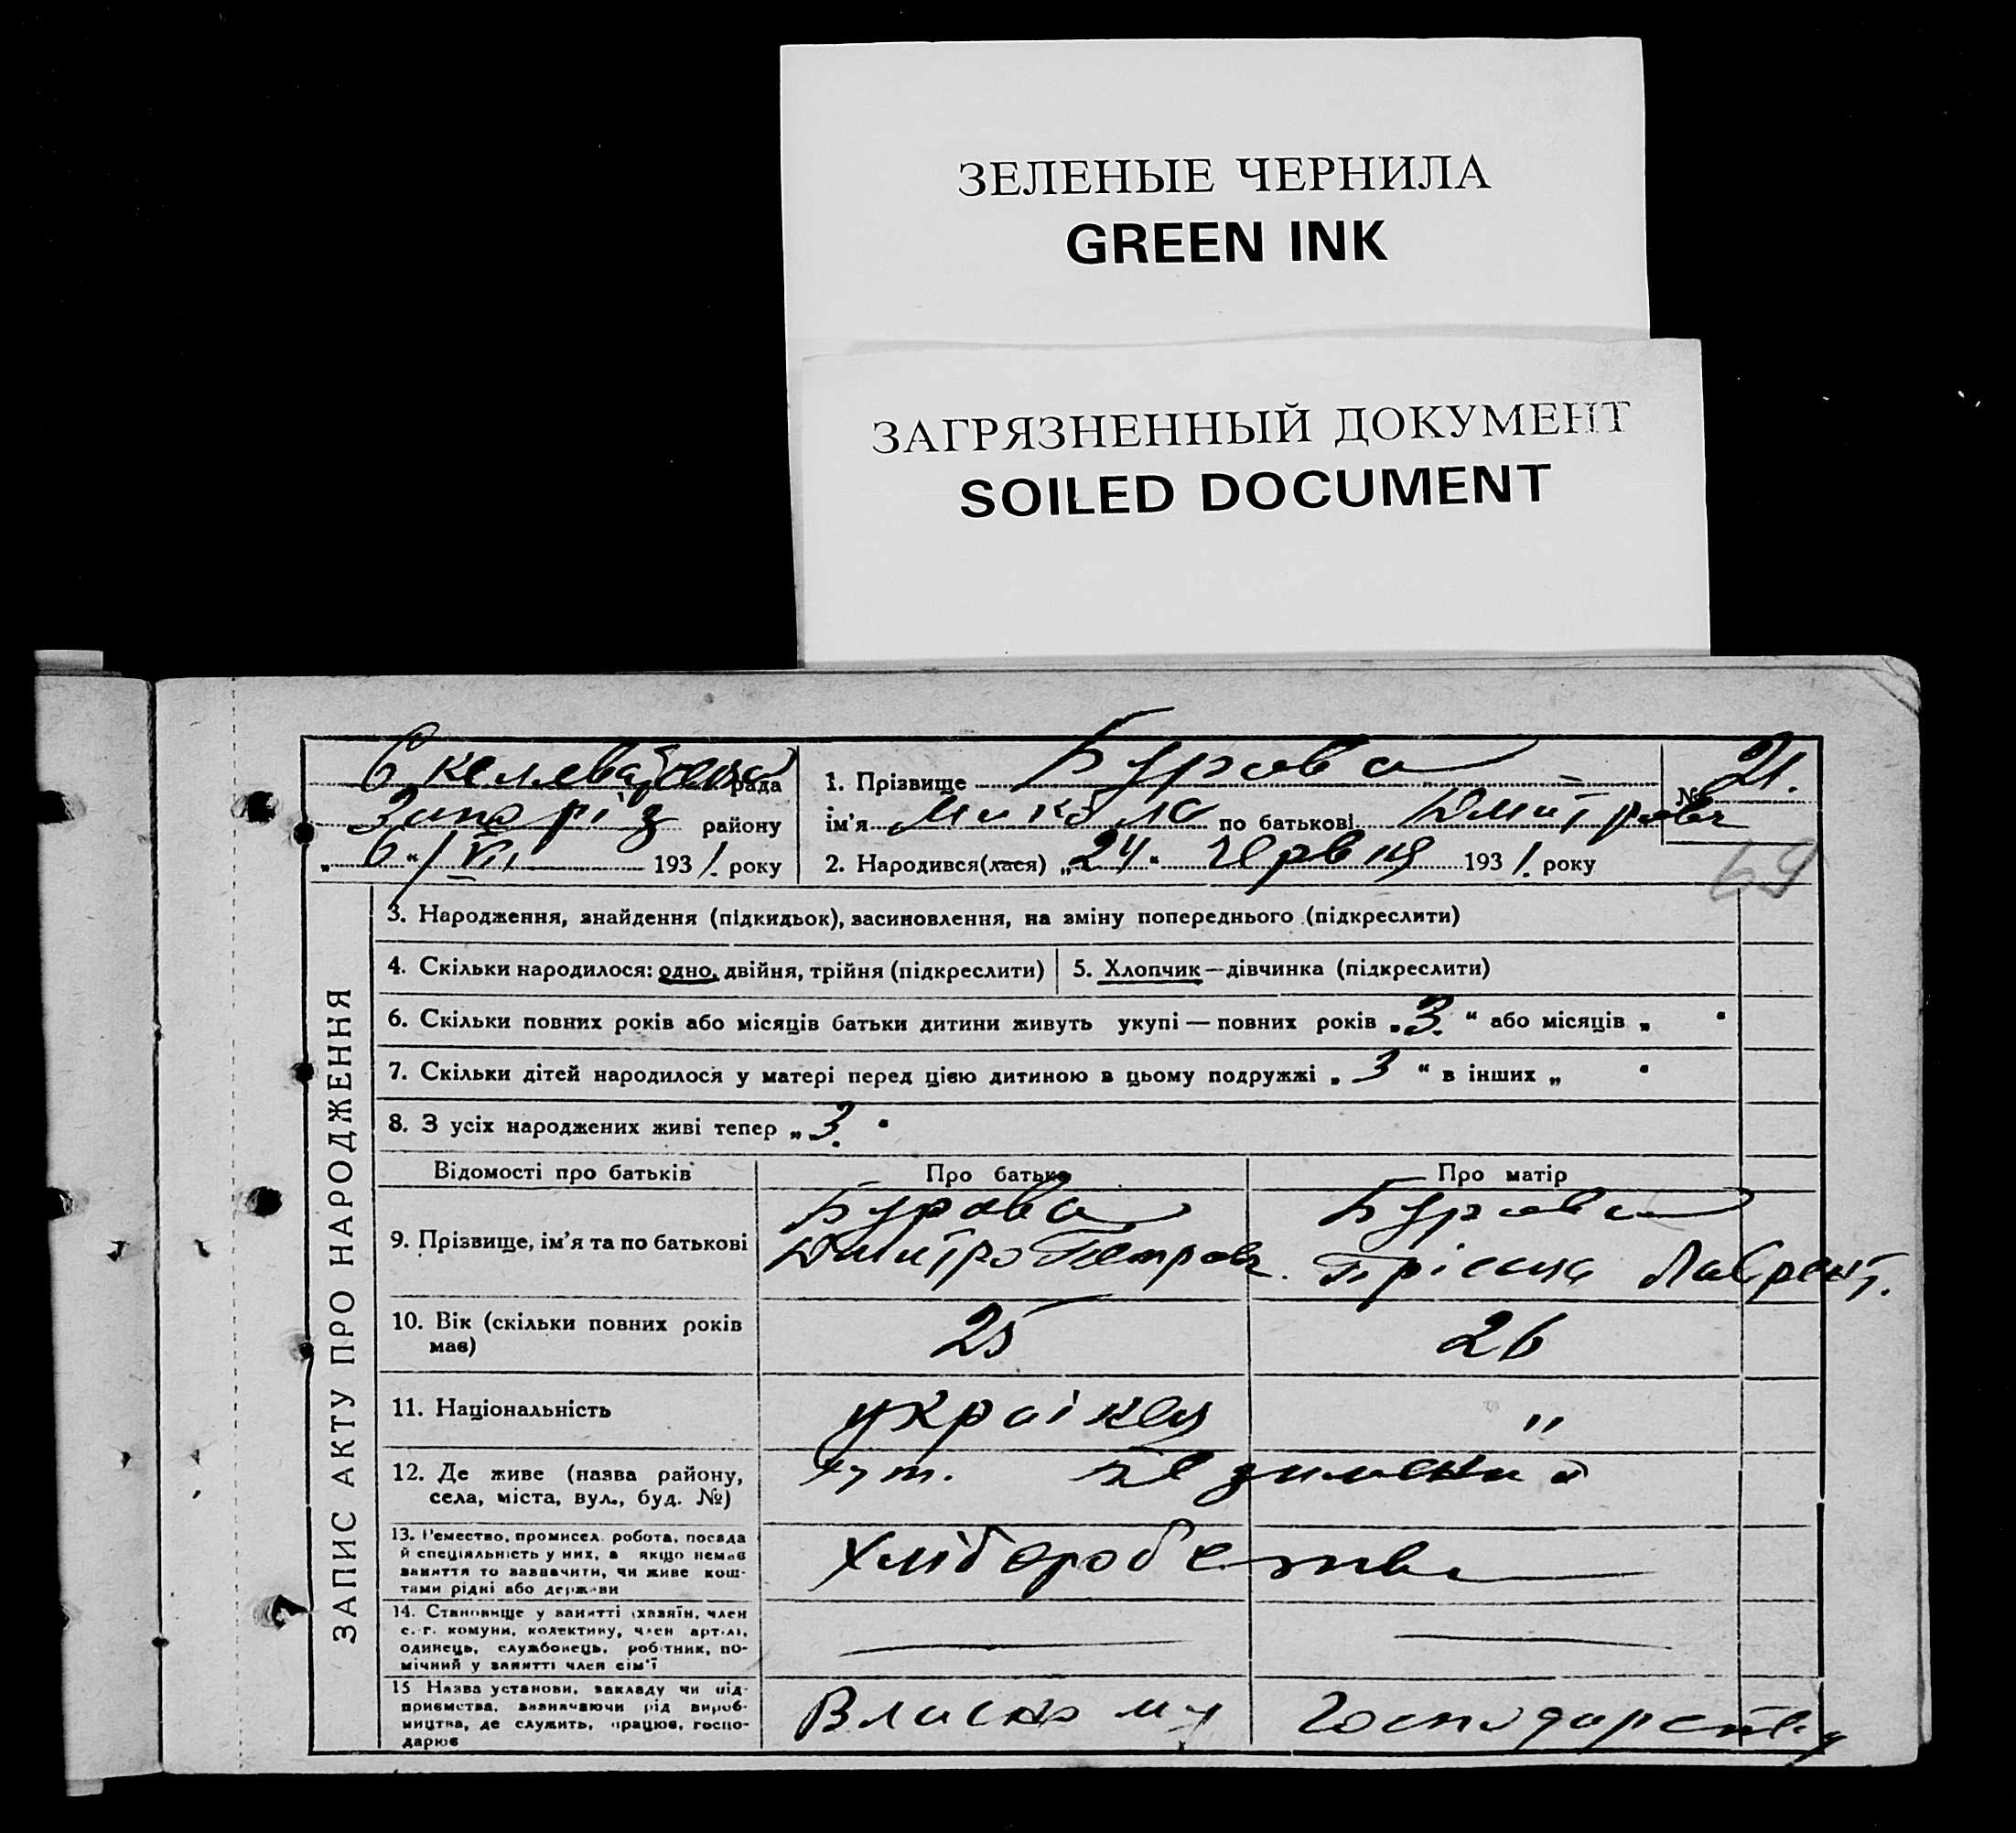 ЗЕЛЕНЫЕ ЧЕРНИЛА
GREEN INK
ЗАГРЯЗНЕННЫЙ ДОКУМЕНТ
SOILED DOCUMENT
рада
Запоріз району
„6“ VII 1931. року
1. Прізвище Бурова
ім'я Микола по батькові Дмитрович
№ 21.
2. Народився(лася) „24“ Червня 1931. року
69
ЗАПИС АКТУ ПРО НАРОДЖЕННЯ
3. Народження, знайдення (підкидьок), засиновлення, на зміну попереднього (підкреслити)
4. Скільки народилося: одно, двійня, трійня (підкреслити)
5. Хлопчик—дівчинка (підкреслити)
6. Скільки повних років або місяців батьки дитини живуть укупі — повних років „3.“ або місяців „ “
7. Скільки дітей народилося у матері перед цією дитиною в цьому подружжі „3“ в інших „ “
8. З усіх народжених живі тепер „3.“
Відомості про батьків
Про батька
Про матір
9. Прізвище, ім'я та по батькові
Бурова
Дмитро Петров.
Бурова
Пріська Лаврент.
10. Вік (скільки повних років
має)
25
26
11. Національність
україкец
"
12. Де живе (назва району,
села, міста, вул., буд. №)
хут.
13. Ремество, промисел, робота, посада
й спеціяльність у них, а якщо немає
заняття то зазначити, чи живе кош-
тами рідні або держави
Хліборобство
14. Становище у занятті (хазяїн, член
с.-г. комуни, колективу, член артілі,
одинець, службовець, робітник, по-
мічний у занятті член сім'ї
15 Назва установи, закладу чи під-
приємства, зазначаючи рід вироб-
ництва, де служить, працює, госпо-
дарює
Власному Господарстві